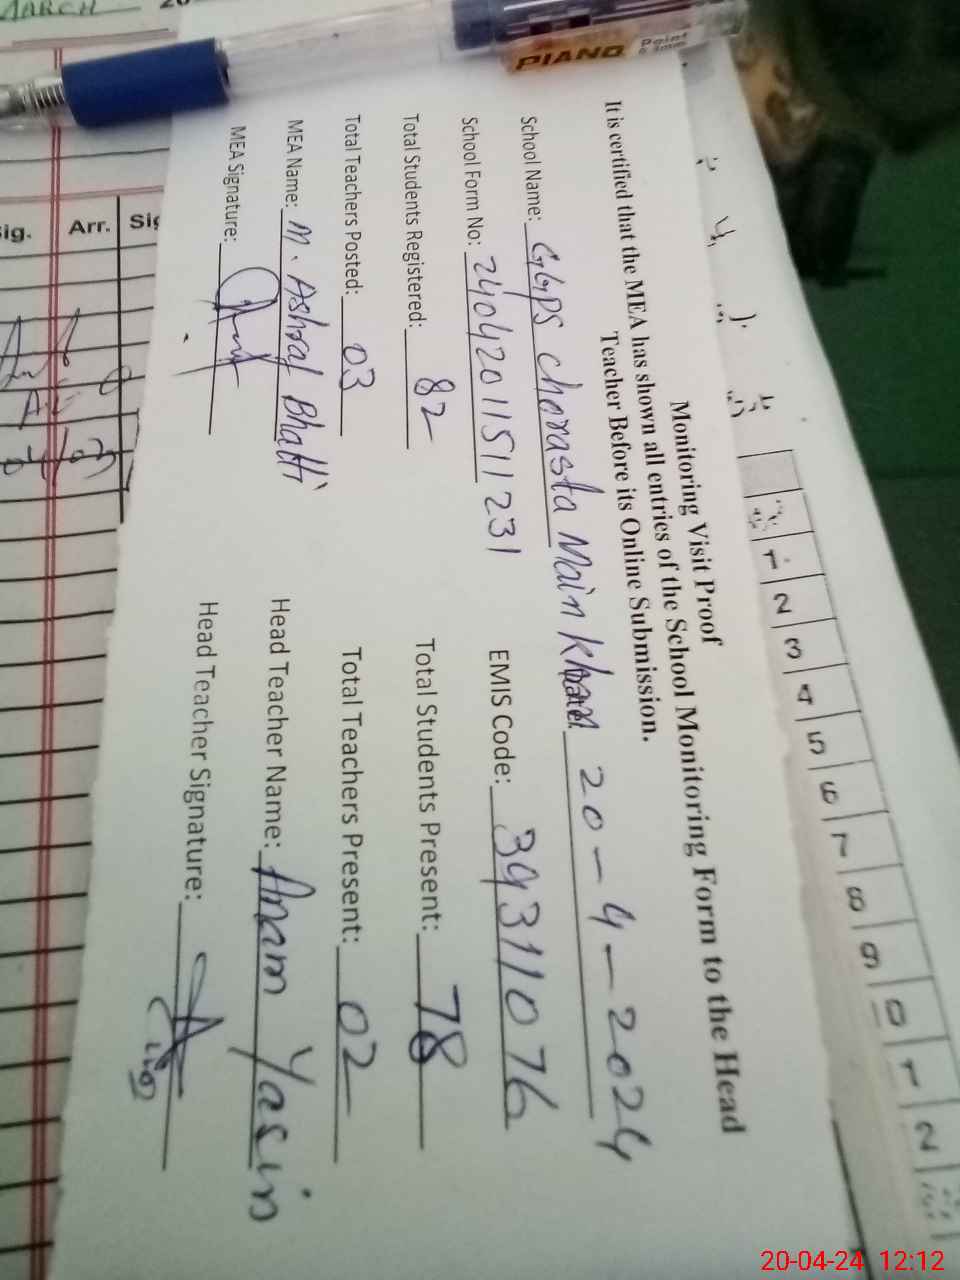 MARCH
PIANO Point
Sig. Arr. Sig
1 2 3 4 5 6 7 8 9 0 1 2
Monitoring Visit Proof
It is certified that the MEA has shown all entries of the School Monitoring Form to the Head
Teacher Before its Online Submission.
School Name: GGPS Chorasta Main 20-4-2024
School Form No: 2404201151123 1 EMIS Code: 39311076
Total Students Registered: 82 Total Students Present: 78
Total Teachers Posted: 03 Total Teachers Present: 02
MEA Name: M. Ashraf Bhatti Head Teacher Name: Anam Yasin
MEA Signature: Head Teacher Signature:
20-04-24 12:12